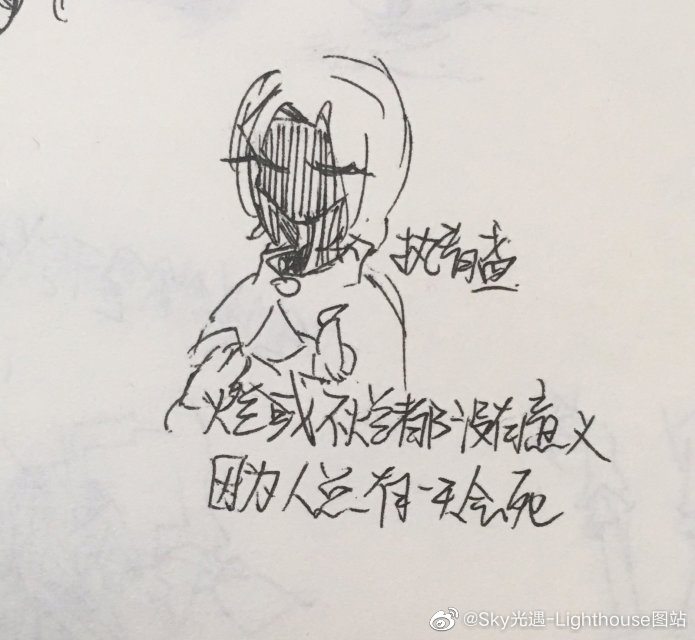 或不都没有意义
因为人总有一天会死
@Sky光遇-Lighthouse图站